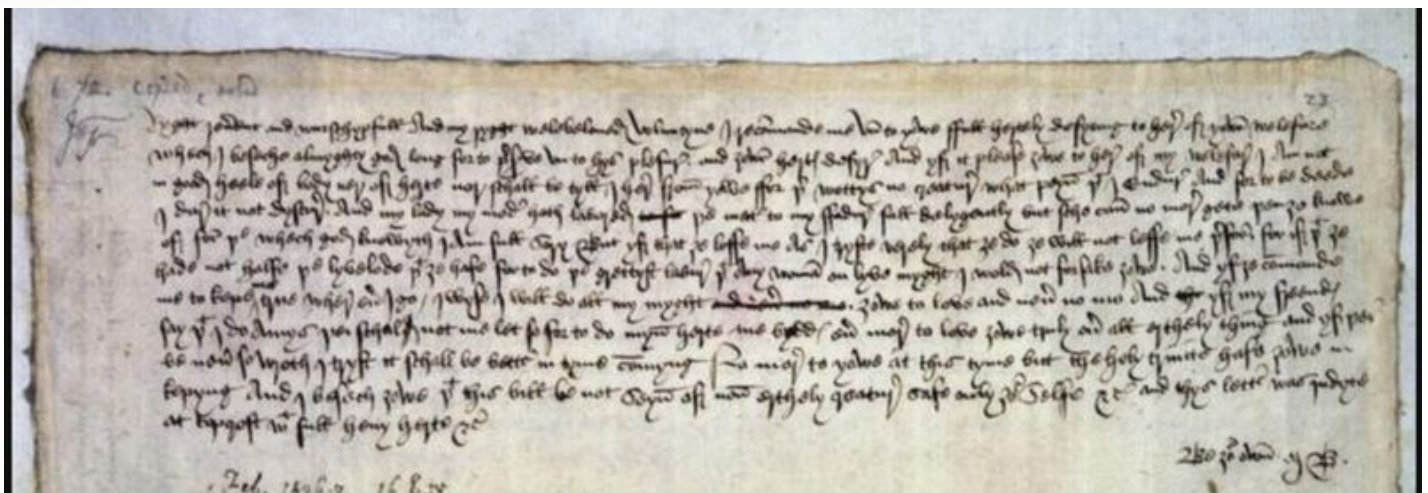 Ryght reuerent and wurschypfull and my ryght welebeloued Voluntyne I recommande me vn to yowe full hertely desyring to here of yowr welefare
whech I beseche almyghty god long for to preserve vn to hys plesure and yowr hertys desyre And yf it please yowe to here of my welefare I am not
in good heele of body ner of herte nor schall be tyll I here from yowe ffor þer wottys no creature what peyn þat I endure And for to be deede
I dare it not dyscure And my lady my moder hath labored þe mater to my ffadure full delygently but sche can no more gete þen ye knowe
of for þe whech god knowyth I am full sory But yf that ye loffe me as I tryste verely that ye do ye will not leffe me þerfor for if þat ye
hade not halfe þe lyvelode þat ye hafe for to do þe grettyst labure þat any woman on lyve myght I wold not forsake yowe And yf ye commande
me to kepe me true where euer I go I wyse I will do all my myght yowe to love and neuer no mo And yf my freendys
say þat I do amys þei schal not me let so for to do myn herte me bydds euer more to love yowe truly ouer all erthely thing and yf þei
be neuer so wroth I tryst it schall be better in tyme commyng No more to yowe at this tyme but the holy trinite hafe yowe in
kepyng And I besech yowe þat this bill be not seyn of non erthely creature safe only yowr selfe &c and thys letter was indyte
at Topcroft wt full heuy herte &c
Be yowr own M B.